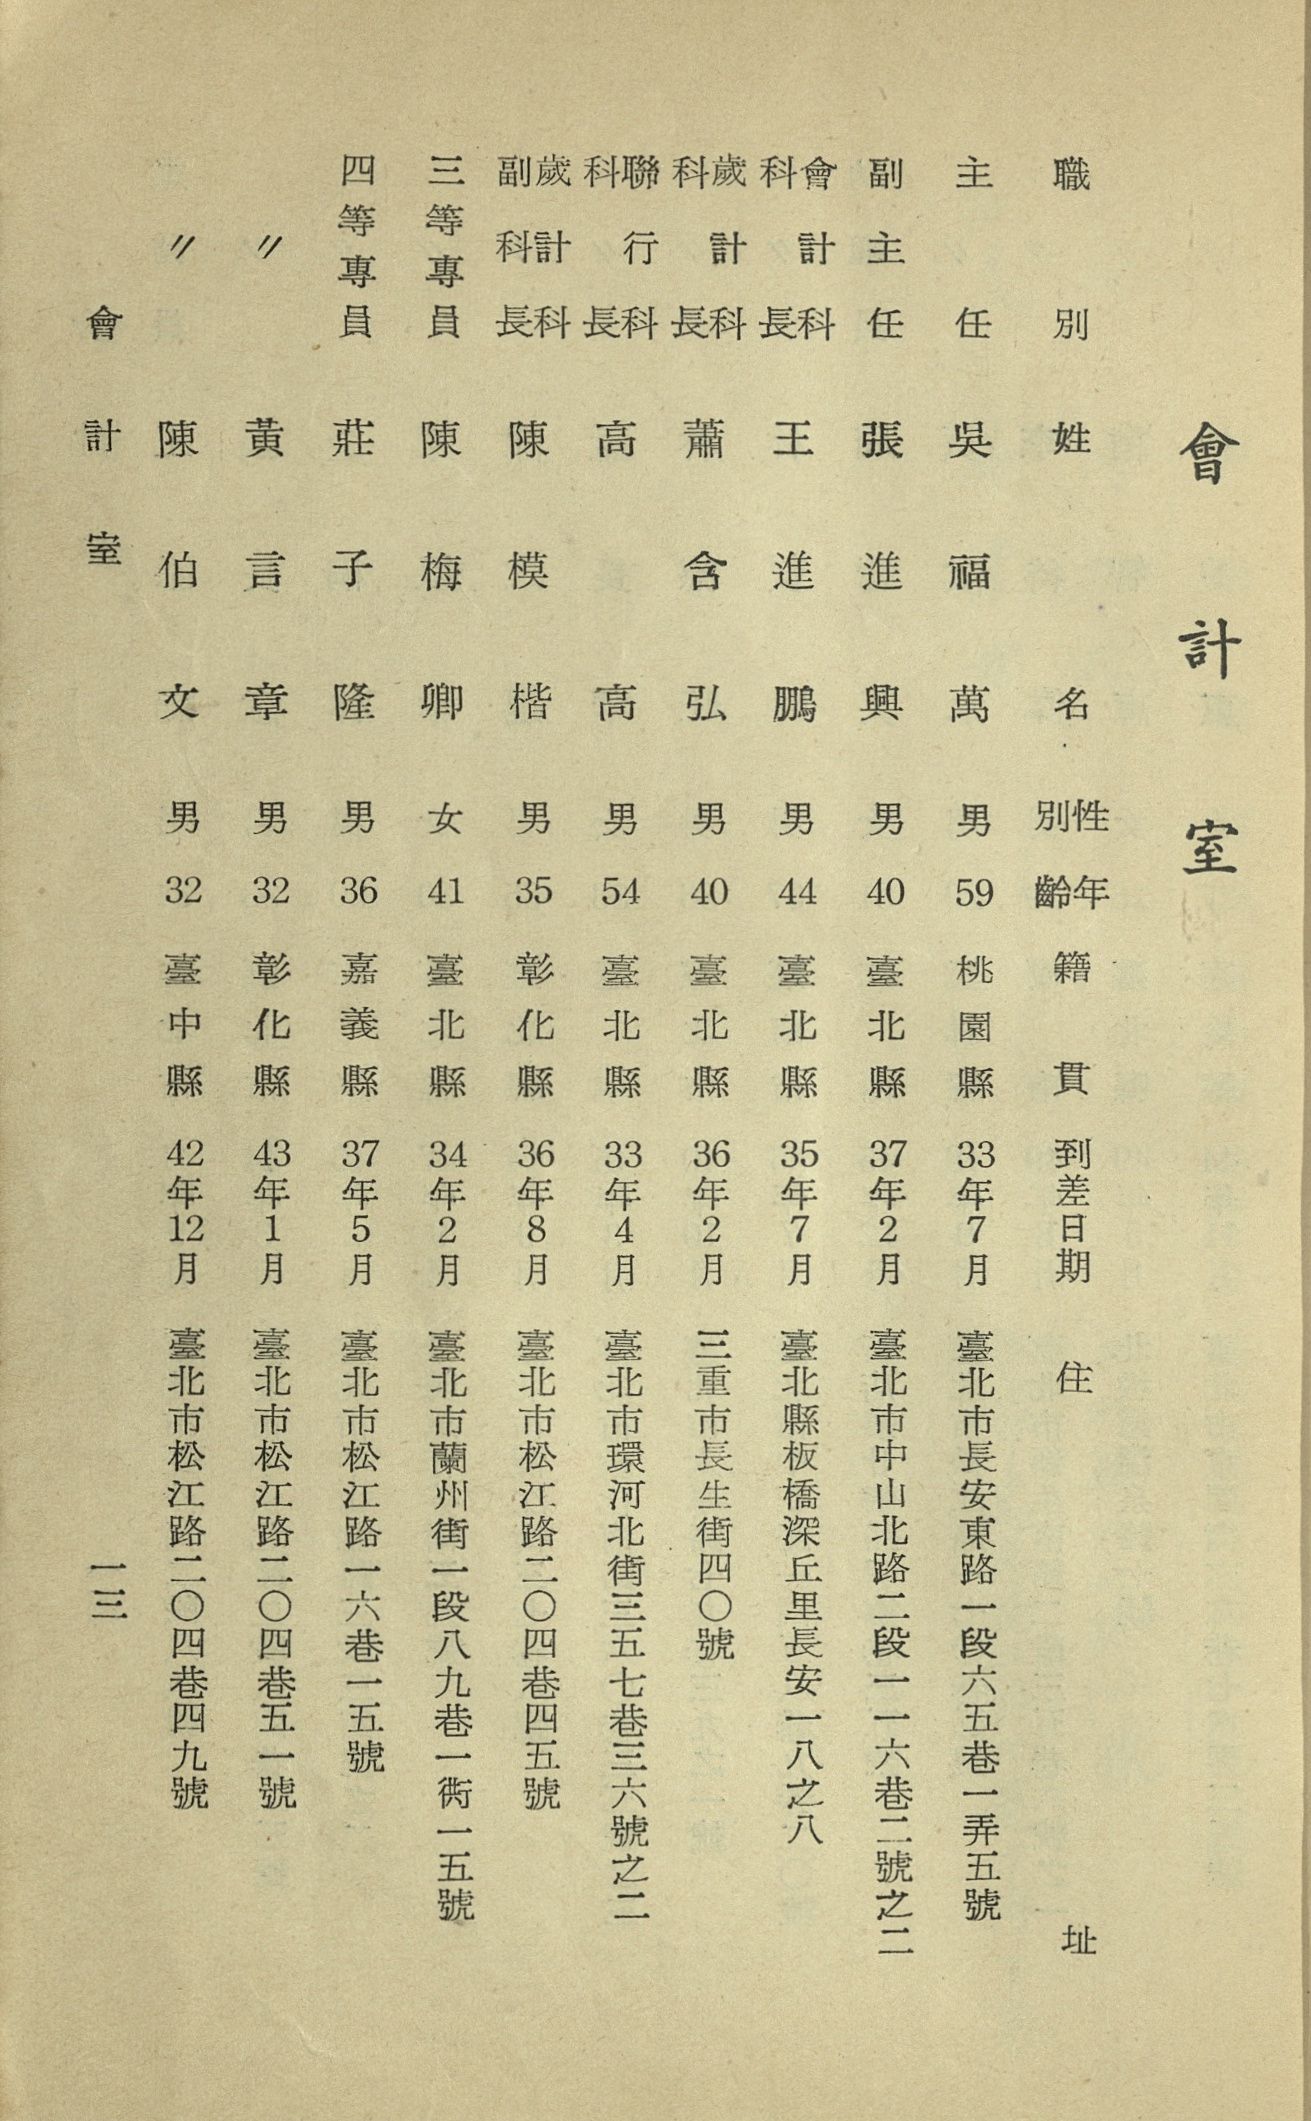 會計室
職別 姓名 性別 年齡 籍貫 到差日期 住址
主任 吳福萬 男 59 桃園縣 33年7月 臺北市長安東路一段六五巷一弄五號
副主任 張進興 男 40 臺北縣 37年2月 臺北市中山北路二段一一六巷二號之二
會計科科長 王進鵬 男 44 臺北縣 35年7月 臺北縣板橋深丘里長安一八之八
歲計科科長 蕭含弘 男 40 臺北縣 36年2月 三重市長生街四〇號
聯行科科長 高高 男 54 臺北縣 33年4月 臺北市環河北街三五七巷三六號之二
歲計科副科長 陳模楷 男 35 彰化縣 36年8月 臺北市松江路二〇四巷四五號
三等專員 陳梅卿 女 41 臺北縣 34年2月 臺北市蘭州街一段八九巷一衖一五號
四等專員 莊子隆 男 36 嘉義縣 37年5月 臺北市松江路一六巷一五號
〃 黃言章 男 32 彰化縣 43年1月 臺北市松江路二〇四巷五一號
〃 陳伯文 男 32 臺中縣 42年12月 臺北市松江路二〇四巷四九號
會計室 一三